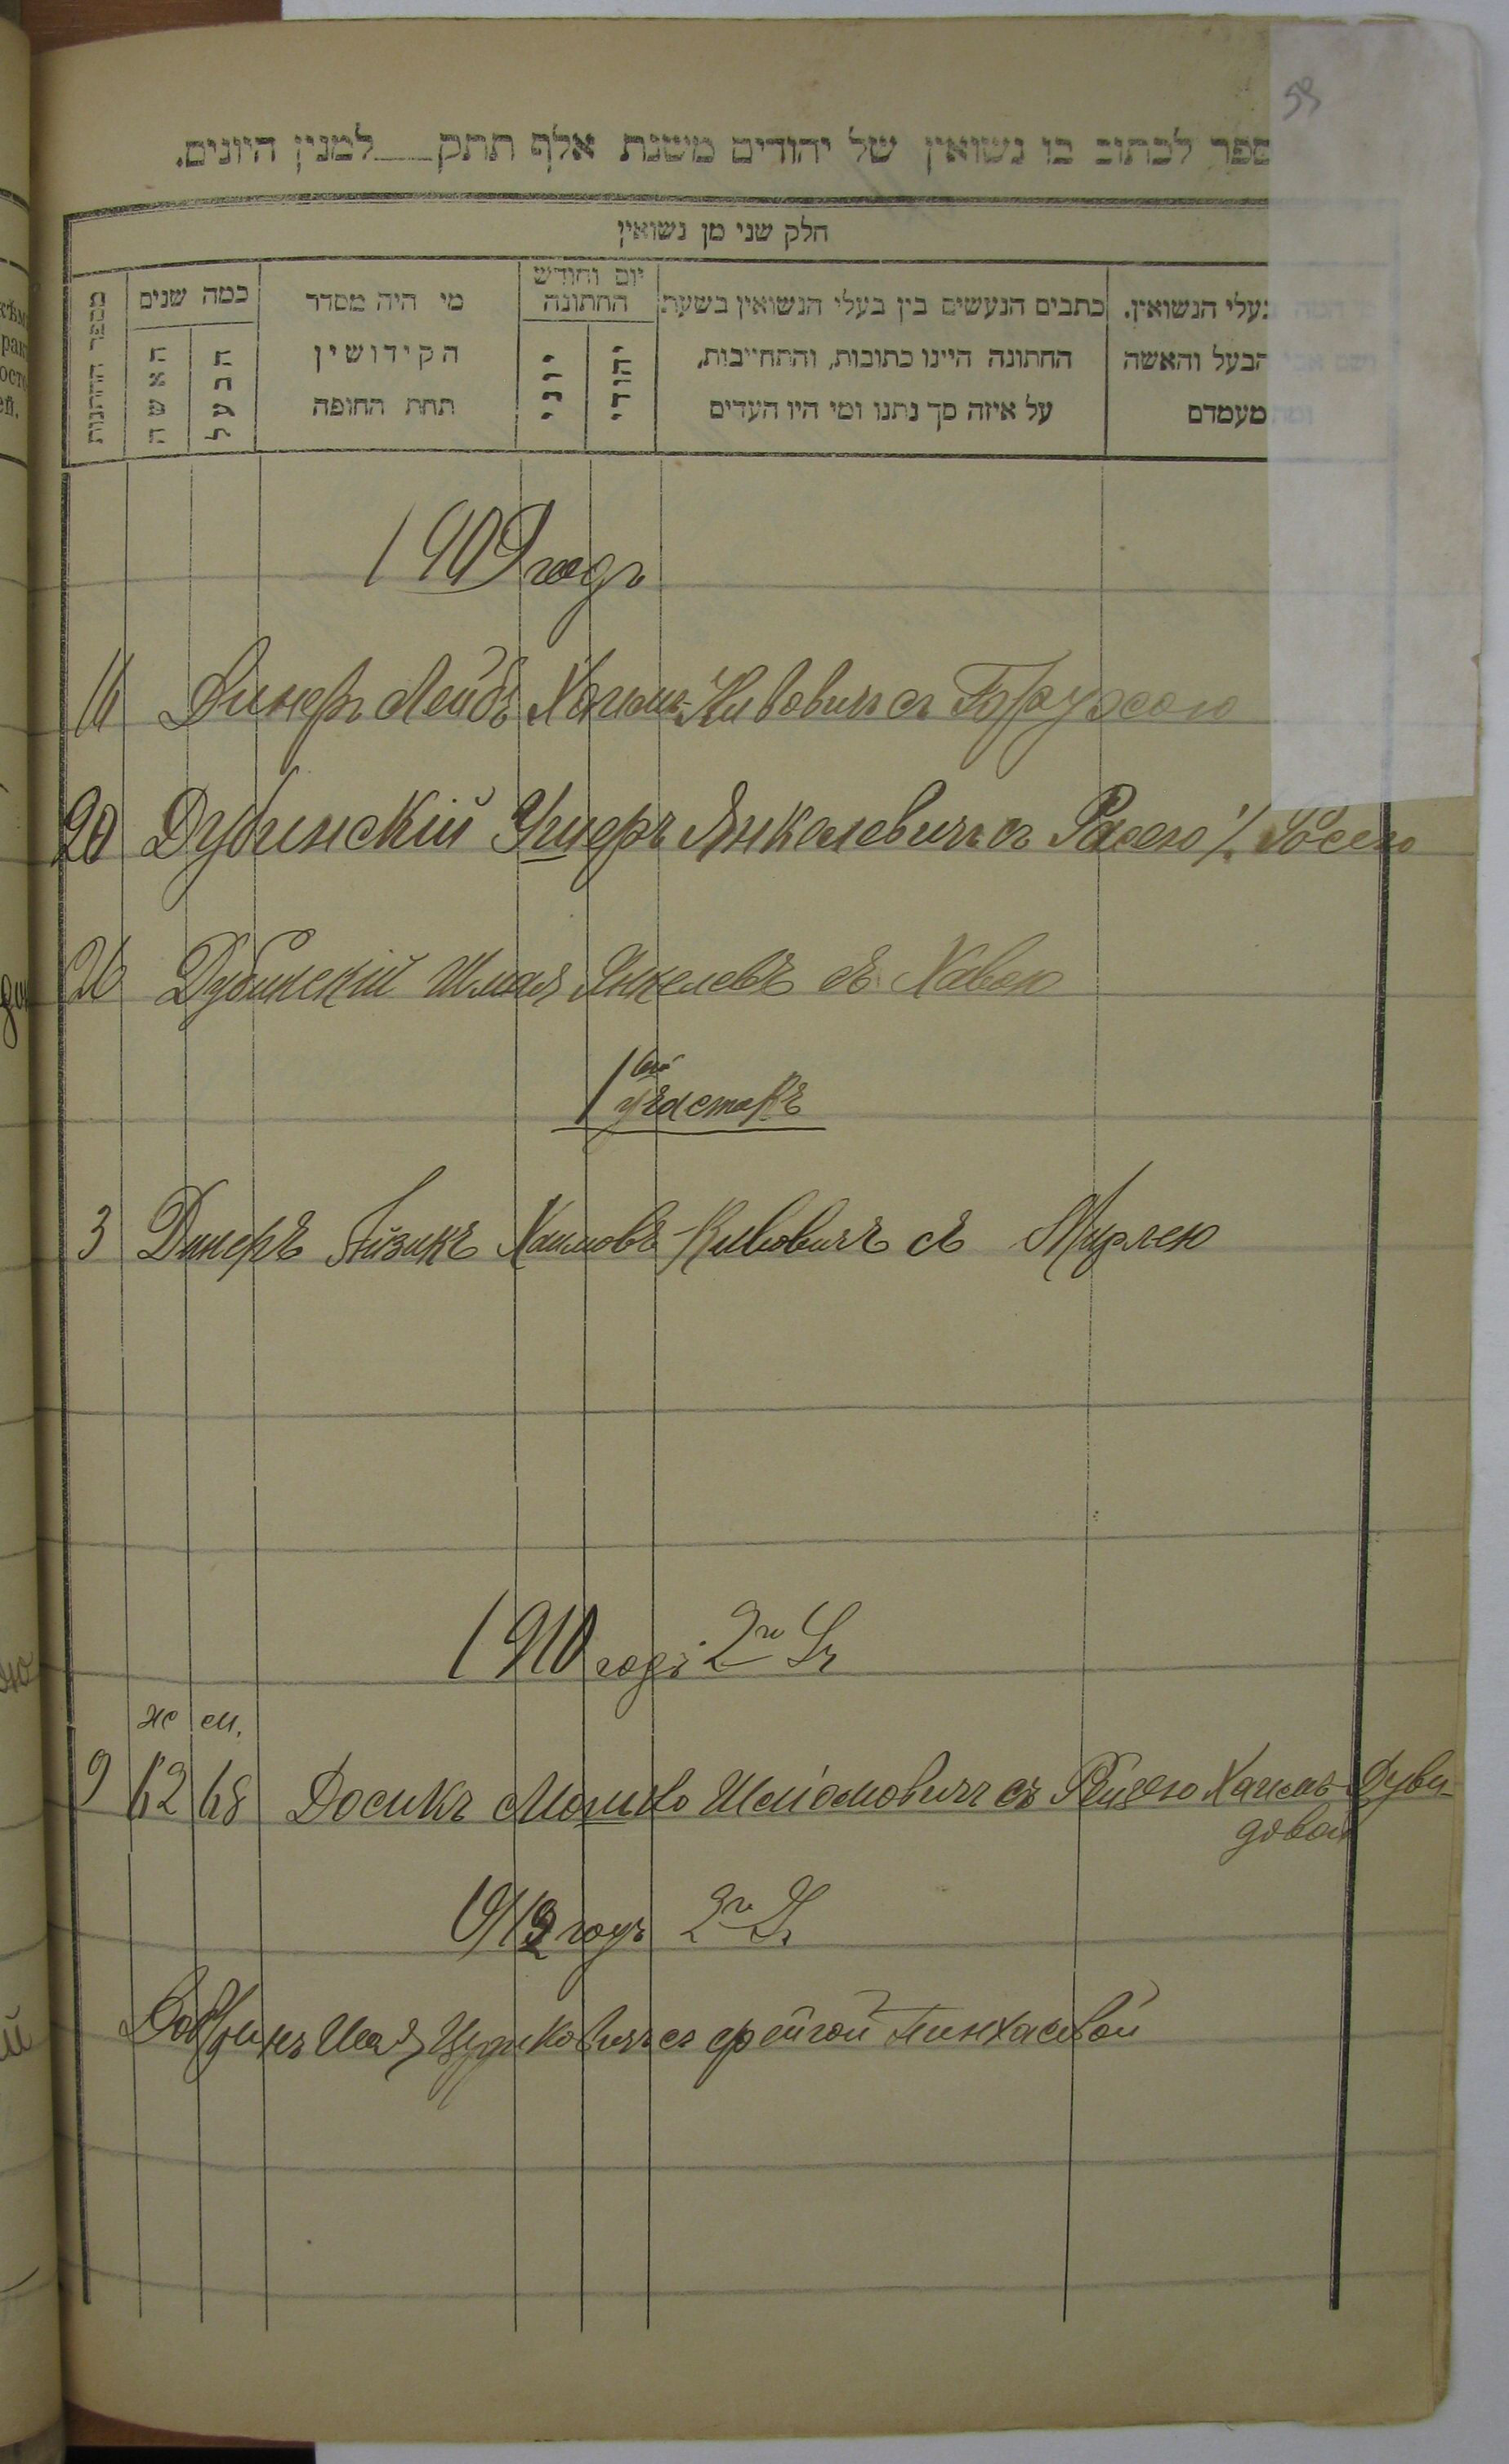 59
ספר לכתוב בו נשואין של יהודים משנת אלף תתק___למנין היונים.
חלק שני מן נשואין
מספר החתנות
כמה שנים
האשה
הבעל
מי היה מסדר
הקידושין
תחת החופה
יום וחודש
החתונה
יוני
יהודי
כתבים הנעשים בין בעלי הנשואין בשעת
החתונה היינו כתובות, והתחייבות,
על איזה סך נתנו ומי היו העדים
בעלי הנשואין.
הבעל והאשה
מעמדם
1909 годъ
16 Динеръ Лейбъ Хаимъ-Кивовичъ съ Брухою
20 Дубинскій Ушеръ Янкелевичъ съ Расею
26 Дубинскій Шмая Янкелевъ съ Хавою
1вый участокъ
3 Динеръ Айзикъ Хаимовъ-Кивовичъ съ Мирлею
1910 годъ 2й Уч
ж м.
9 62 68 Досикъ Мошко Шліомовичъ съ Рейзею Хаимъ-Дуви-
довой
1912 годъ 2й У.
Добринъ Шая Ицковичъ съ Фейгой Пинхасовой